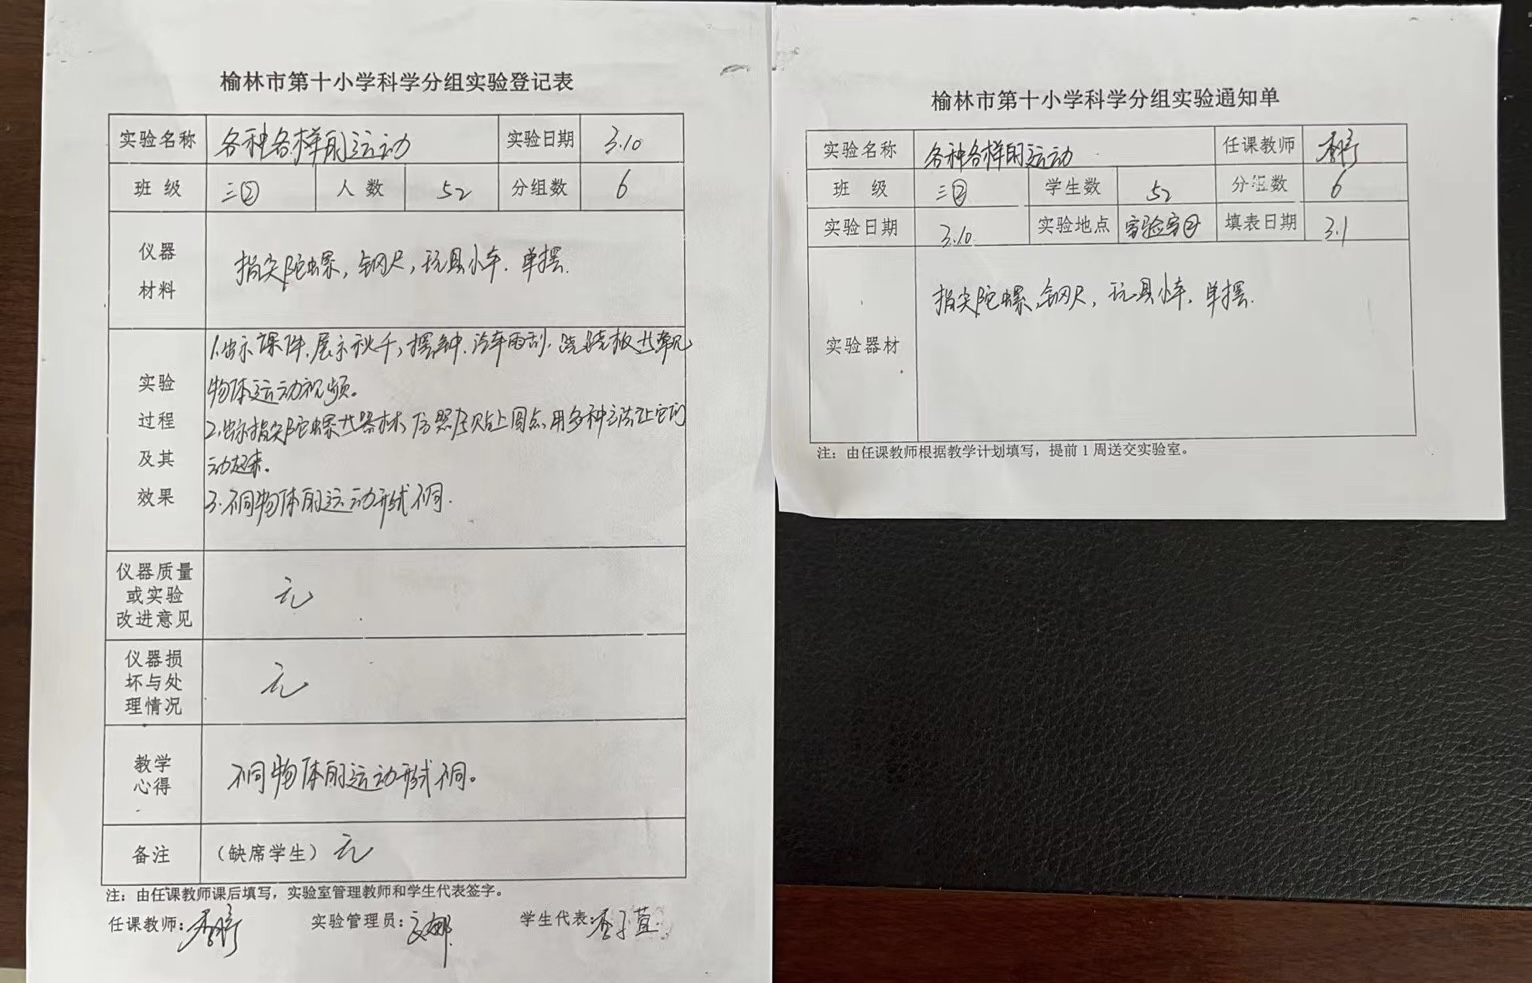 榆林市第十小学科学分组实验登记表
实验名称 各种各样的运动 实验日期 3.10
班 级 三② 人 数 52 分组数 6
仪器材料 指尖陀螺,钢尺,玩具小车.单摆.
实验过程及其效果
1.出示课件.展示秋千,摆钟.汽车雨刮.跷跷板共常见
物体运动视频。
2.出示指尖陀螺共器材,贴上圆点,用多种方法让它们
动起来。
3.不同物体的运动形式不同.
仪器质量或实验改进意见 无
仪器损坏与处理情况 无
教学心得 不同物体的运动形式不同。
备注 (缺席学生)无
注:由任课教师课后填写,实验室管理教师和学生代表签字。
任课教师: 实验管理员: 学生代表:
榆林市第十小学科学分组实验通知单
实验名称 各种各样的运动 任课教师
班 级 三② 学生数 52 分组数 6
实验日期 3.10 实验地点 实验室 填表日期 3.1
实验器材 指尖陀螺,钢尺,玩具小车,单摆.
注:由任课教师根据教学计划填写,提前1周送交实验室。